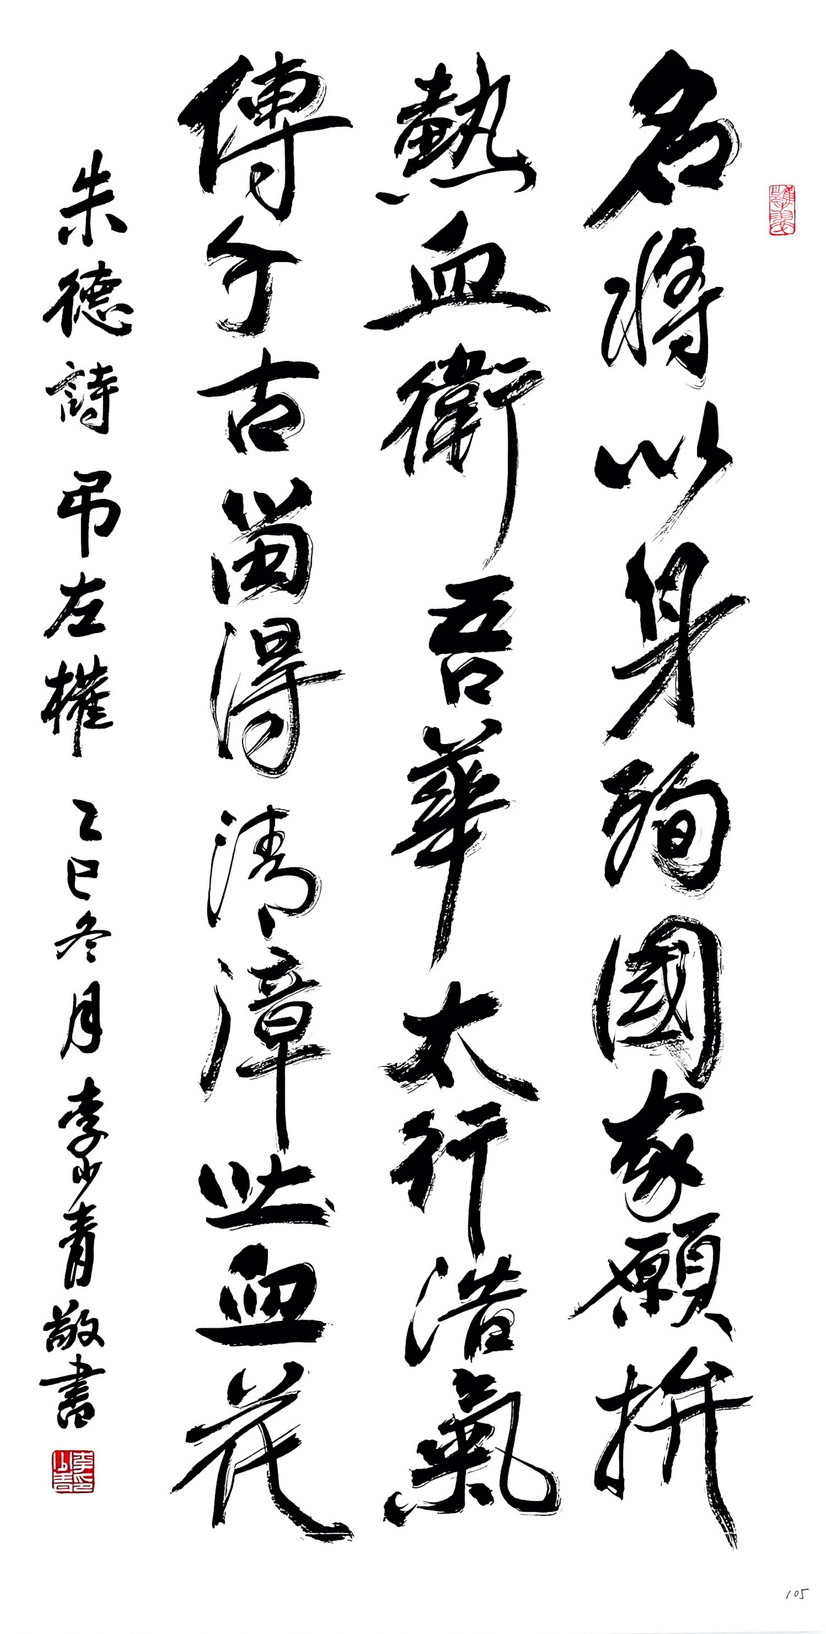 名將以身殉國家願拚
熱血衛吾華太行浩氣
傳千古留得清漳吐血花
朱德詩 吊左權 乙巳冬月 李少青敬書
105